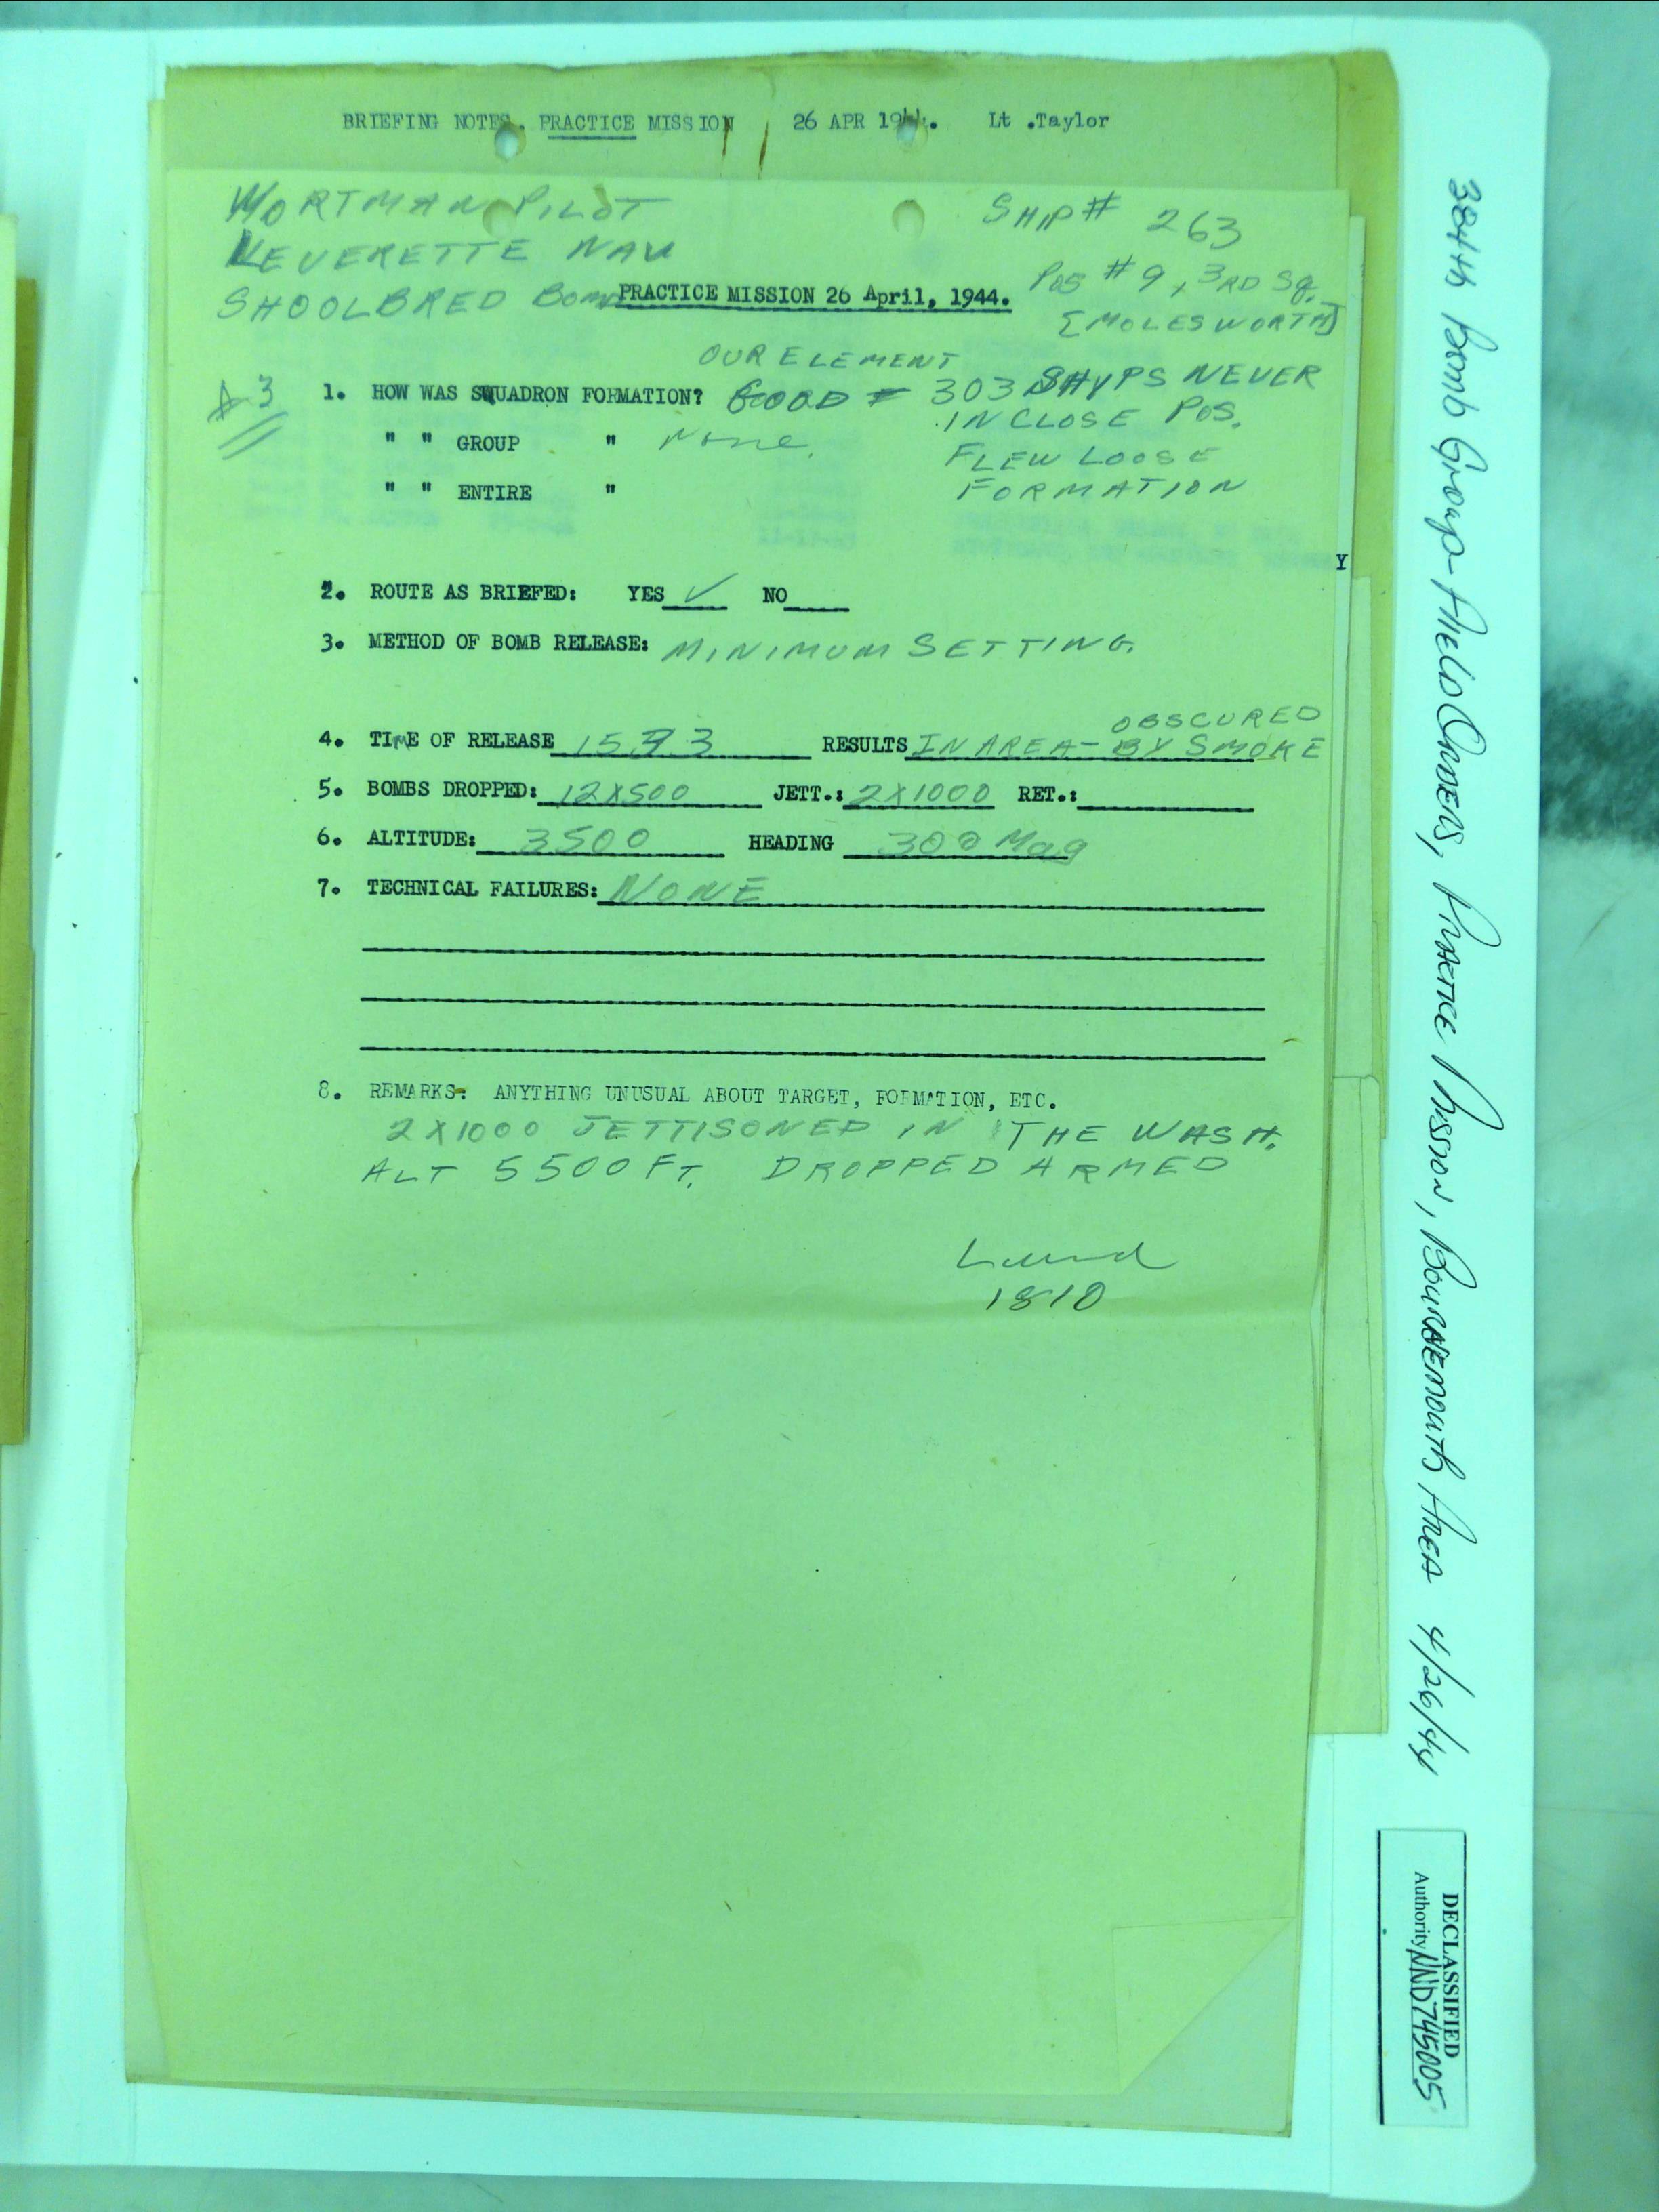 BRIEFING NOTES. PRACTICE MISSION 26 APR 1944. Lt .Taylor
WORTMAN PILOT
LEVERETTE NAV
SHOOLBRED BOMB
SHIP # 263
POS # 9, 3RD Sq.
[MOLESWORTH]
PRACTICE MISSION 26 April, 1944.
OUR ELEMENT
1. HOW WAS SQUADRON FORMATION? GOOD - 303 SHIPS NEVER
IN CLOSE POS.
" " GROUP " None.
FLEW LOOSE
" " ENTIRE "
FORMATION
Y
2. ROUTE AS BRIEFED: YES ✓ NO
3. METHOD OF BOMB RELEASE: MINIMUM SETTING.
OBSCURED
4. TIME OF RELEASE RESULTS IN AREA - BY SMOKE
5. BOMBS DROPPED: 12X500 JETT.: 2X1000 RET.:
6. ALTITUDE: 3500 HEADING 300 Mag
7. TECHNICAL FAILURES: NONE
8. REMARKS: ANYTHING UNUSUAL ABOUT TARGET, FORMATION, ETC.
2X1000 JETTISONED IN THE WASH.
ALT 5500 FT. DROPPED ARMED
1810
384th Bomb Group - Field Orders, Practice Mission, Bournemouth Area 4/26/44
DECLASSIFIED
Authority NND745005